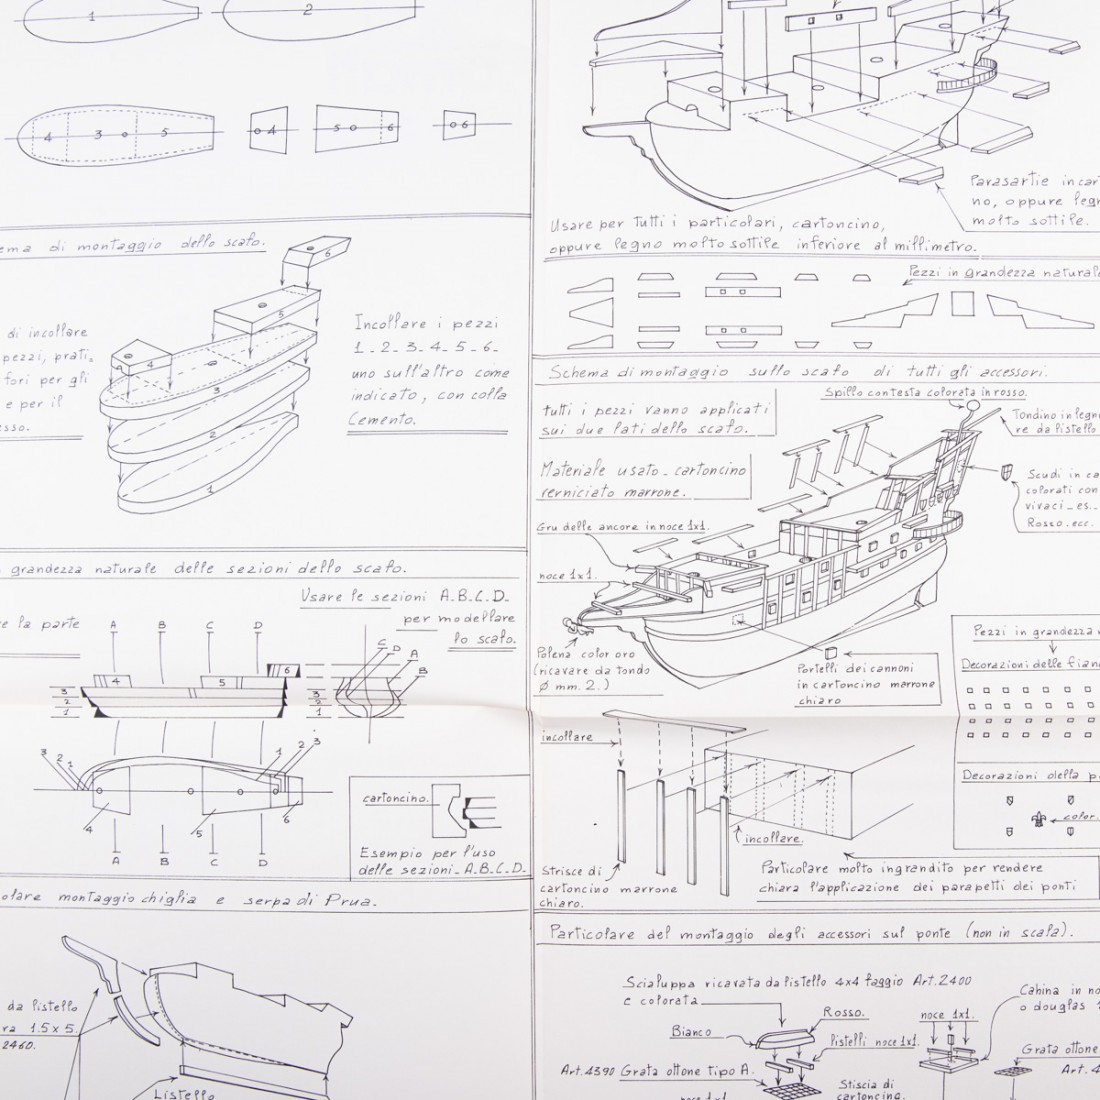 1
2
4 3 5
4
5 6
6
di montaggio dello scafo.
6
5
4
3
2
1
di incollare
pezzi, prati_
fori per gli
e per il
Incollare i pezzi
1_2_3_4_5_6_
uno sull'altro come
indicato, con colla
Cemento.
grandezza naturale delle sezioni dello scafo.
Usare le sezioni A.B.C.D.
per modellare
lo scafo.
la parte
A B C D
4 5 6
3
2
1
C D A B
3
2
1
3 2 1
1 2 3
4 5 6
A B C D
cartoncino.
Esempio per l'uso
delle sezioni_A.B.C.D.
montaggio chiglia e serpa di Prua.
da listello
1.5x5.
2460.
Listello
Parasartie in
no, oppure
molto sottile.
Usare per tutti i particolari, cartoncino,
oppure legno molto sottile inferiore al millimetro.
Pezzi in grandezza
Schema di montaggio sullo scafo di tutti gli accessori.
Spillo con testa colorata in rosso.
tutti i pezzi vanno applicati
sui due lati dello scafo.
Tondino in legno
re da listello
Materiale usato_cartoncino
verniciato marrone.
Scudi in
colorati con
vivaci_es._
Rosso.ecc.
Gru delle ancore in noce 1x1.
noce 1x1.
Polena color oro
(ricavare da tondo
Ø mm. 2.)
Portelli dei cannoni
in cartoncino marrone
chiaro
Pezzi in grandezza
Decorazioni delle
Decorazioni della
color.
incollare
incollare.
Strisce di
cartoncino marrone
chiaro.
Particolare molto ingrandito per rendere
chiara l'applicazione dei parapetti dei ponti
Particolare del montaggio degli accessori sul ponte (non in scala).
Scialuppa ricavata da listello 4x4 faggio Art.2400
e colorata
Rosso.
Bianco
listelli noce 1x1.
Art.4390 Grata ottone tipo A.
noce 1x1
Stiscia di
cartoncino.
noce 1x1.
Cabina in
o douglas
Grata ottone
Art.